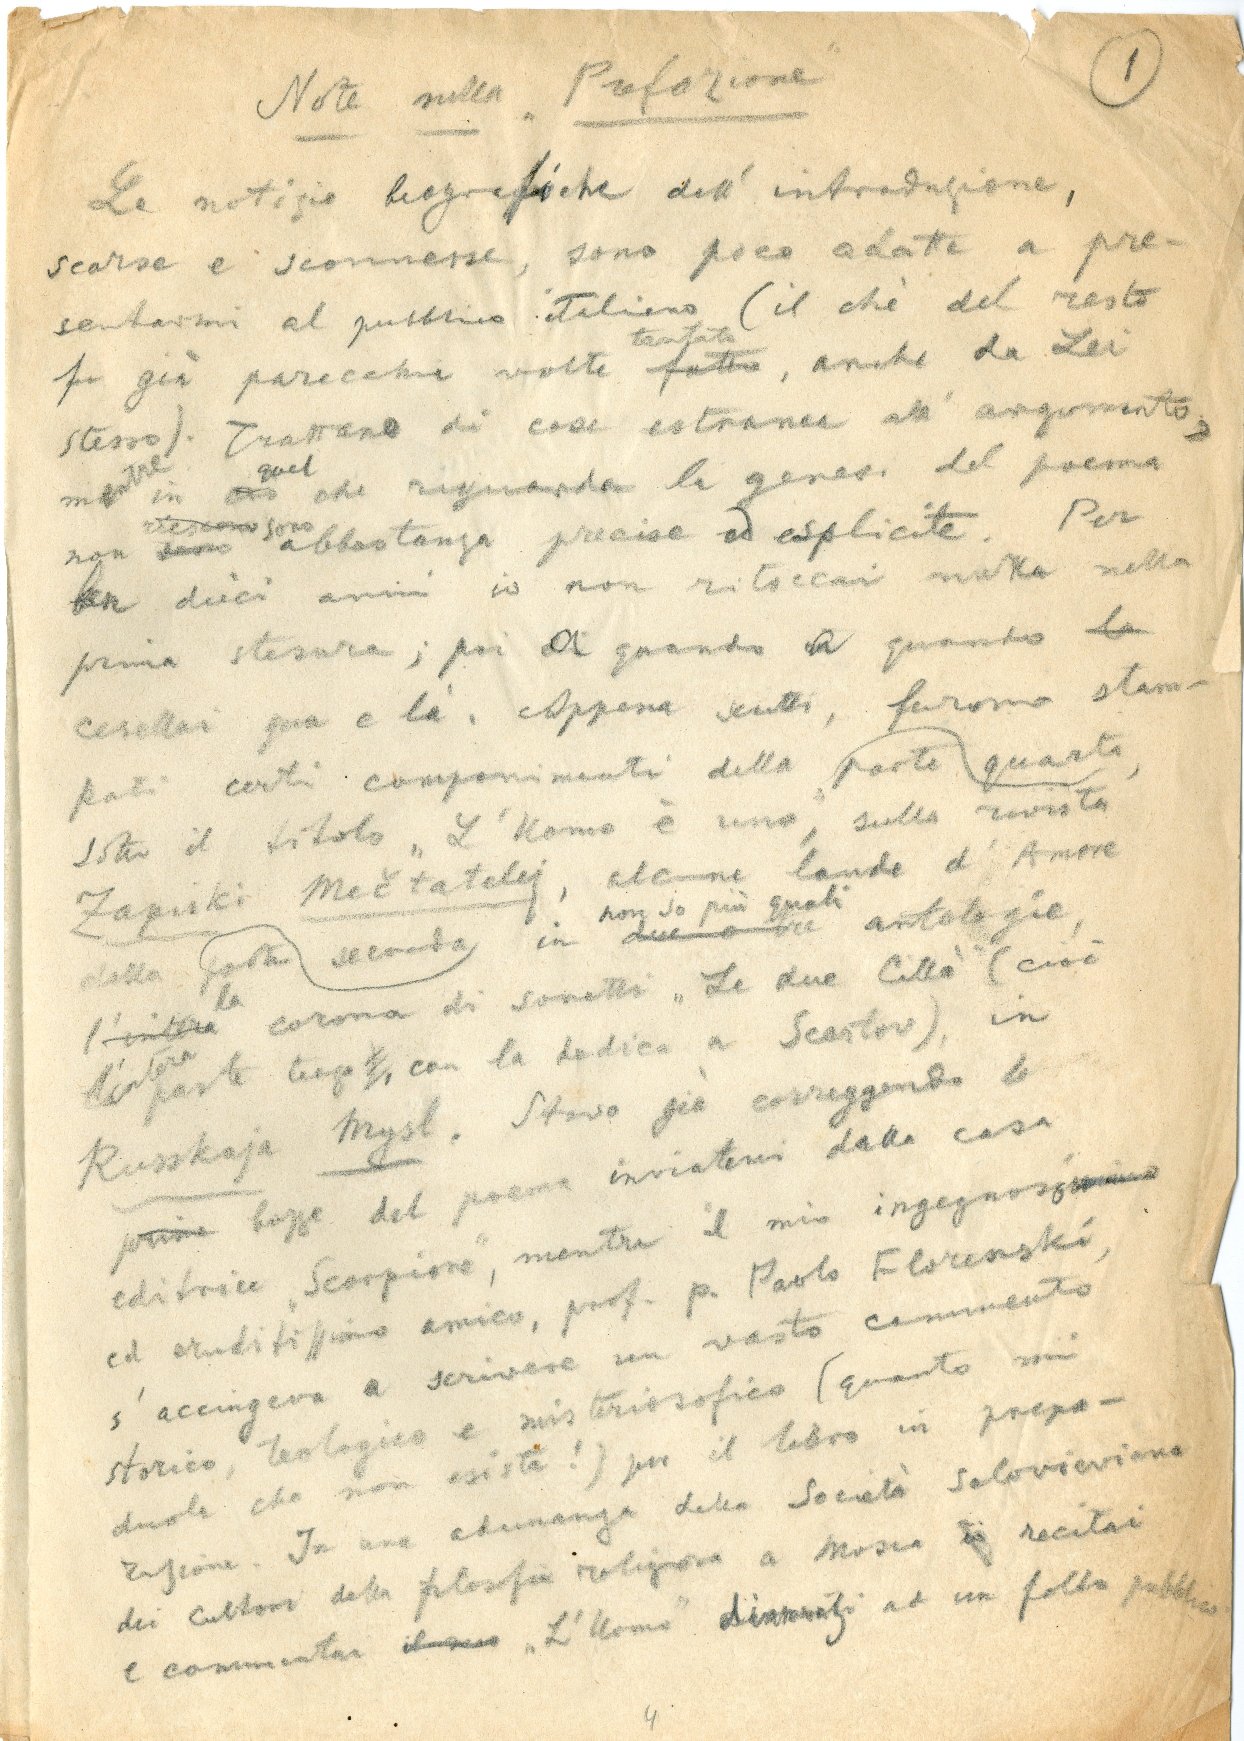 1
Note sulla „Prefazione“
Le notizie biografiche dell' introduzione,
scarse e sconnesse, sono poco adatte a pre-
sentarmi al pubblico italiano (il chè del resto
fu già parecchie volte fatto tentato, anche da Lei
stesso). Trattano di cose estranee all' argomento,
mentre in ciò quel che riguarda la genesi del poema
non sono abbastanza precise ed esplicite. Per
ben dieci anni io non ritoccai nulla nella
prima stesura; poi di quando a quando la
cesellai qua e là. Appena scritti, furono stam-
pati certi componimenti della parte quarta,
sotto il titolo „L'Uomo è uno“, sulla rivista
Zapiski Mečtatelej, alcune laude d'Amore
dalla parte seconda in due o tre non so più quali antologie,
l'intera la corona di sonetti „Le due Città“ (cioè
l'intera parte terza, con la dedica a Scestov), in
Russkaja Mysl. Stavo già correggendo le
prime bozze del poema inviatemi dalla casa
editrice „Scorpione“, mentre il mio ingegnos
ed eruditissimo amico, prof. p. Paolo Florenski,
s'accingeva a scrivere un vasto commento
storico, teologico e misteriosofico (quanto mi
duole che non esista!) per il libro in prepa-
razione. In una adunanza della Società Solovieviana
dei cultori della filosofia religiosa a Mosca recitai
e commentai il mio „L'Uomo“ dinnanzi ad un folto pubblico
4